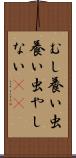 むし養い虫
養い虫やし
ない